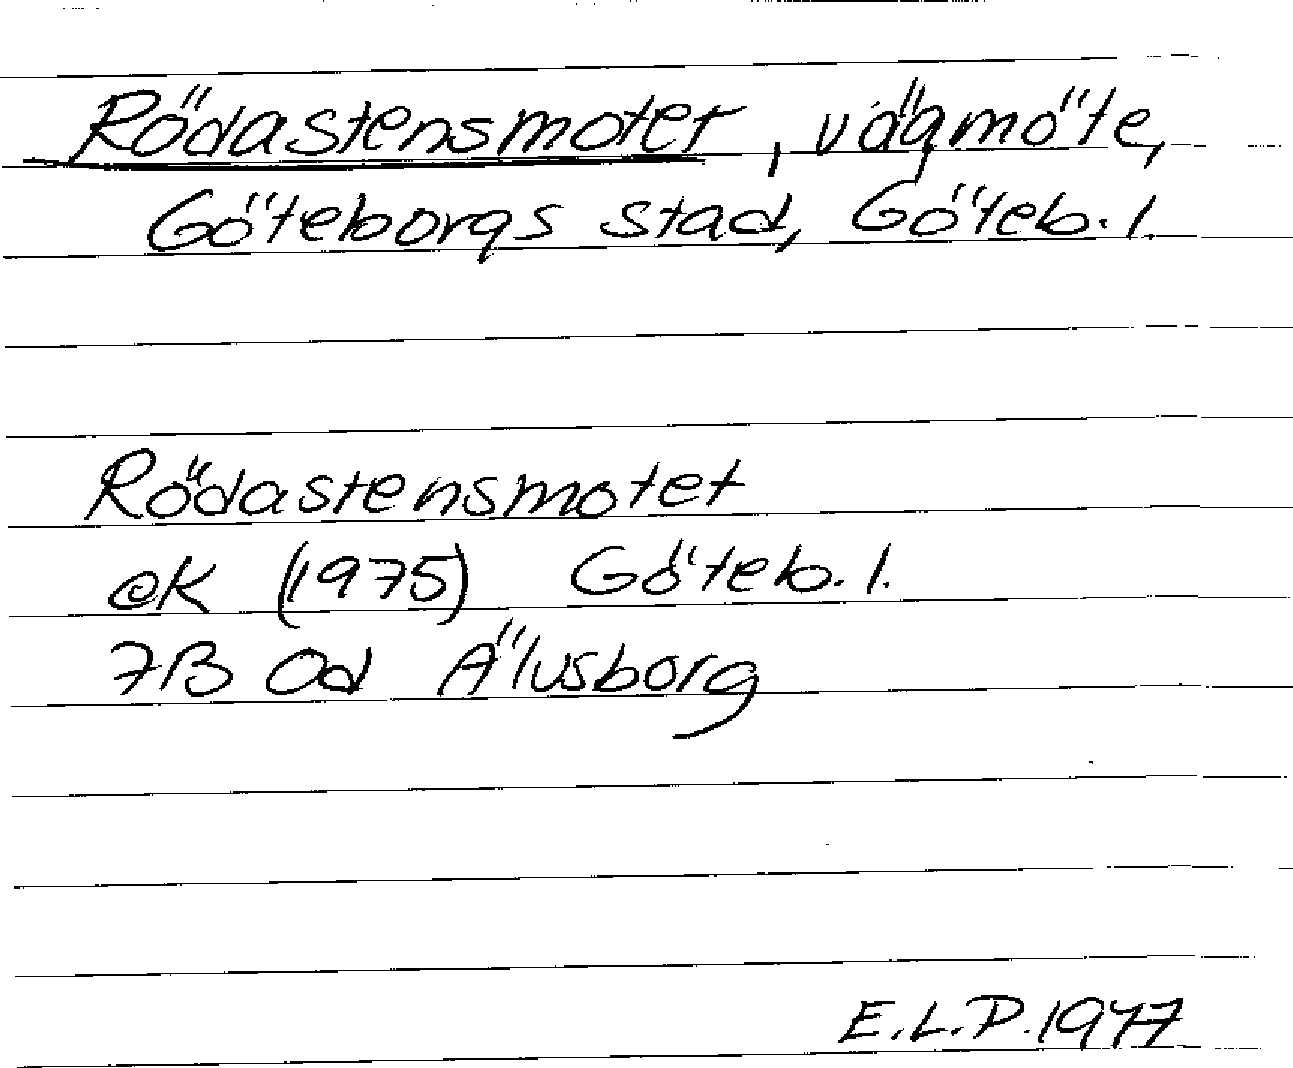 Rödastensmotet, vägmöte,
Göteborgs stad, Göteb. l.
Rödastensmotet
eK (1975) Göteb. l.
7B 0d Älvsborg
E.L.P. 1977